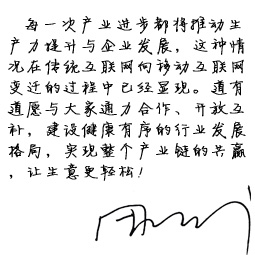 每一次产业进步都将推动生
产力提升与企业发展，这种情
况在传统互联网向移动互联网
变迁的过程中已经显现。道有
道愿与大家通力合作、开放互
补，建设健康有序的行业发展
格局，实现整个产业链的共赢
，让生意更轻松！